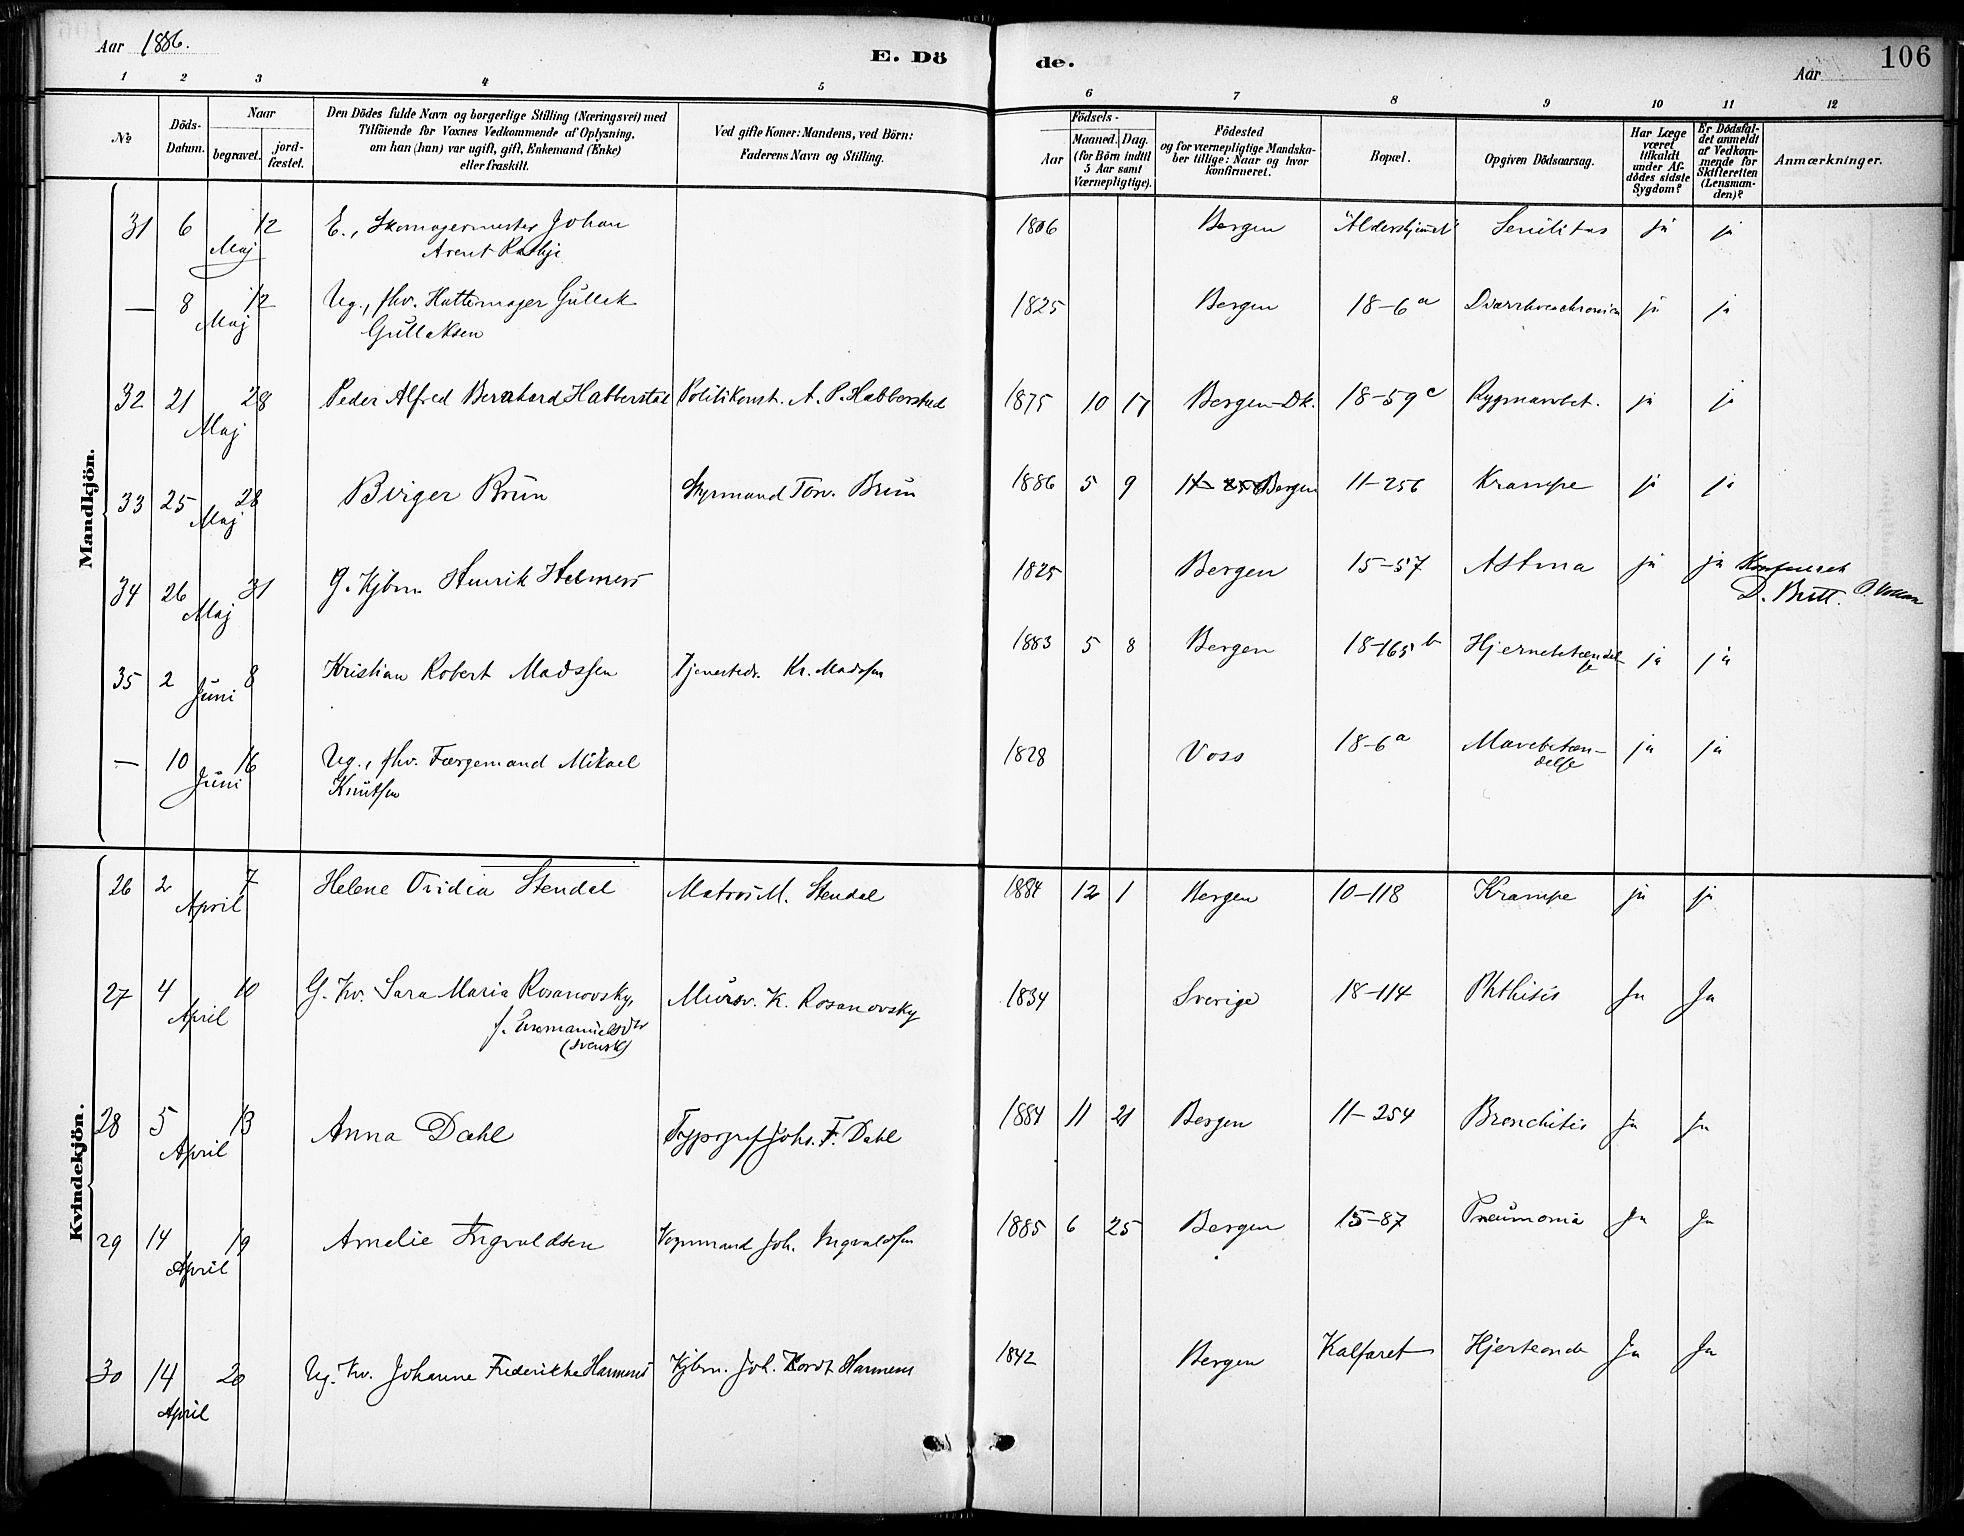 Aar 1886.
E. Döde.
Aar
106
1 2 3 4 5 6 7 8 9 10 11 12
№
Döds-Datum.
Naar
begravet.
jordfæstet.
Den Dödes fulde Navn og borgerlige Stilling (Næringsvei) med
Tilföiende for Voxnes Vedkommende af Oplysning,
om han (hun) var ugift, gift, Enkemand (Enke)
eller fraskilt.
Ved gifte Koner: Mandens, ved Börn:
Faderens Navn og Stilling.
Födsels-
Aar
Maaned. Dag.
(for Börn indtil
5 Aar samt
Værnepligtige).
Födested
og for værnepligtige Mandska-
ber tillige: Naar og hvor
konfirmeret.
Bopæl.
Opgiven Dödsaarsag.
Har Læge
været
tilkaldt
under Af-
dödes sidste
Sygdom?
Er Dödsfal-
det anmeldt
af Vedkom-
mende for
Skifteretten
(Lensman-
den)?
Anmærkninger.
Mandkjön.
31 6 12 E., Skomagermester Johan 1806 Bergen "Aldershjemmet" Senilitas ja ja
Maj Arent
— 8 12 Ug., fhv. Hattemager Gullek 1825 Bergen 18-6 a Diarrhoea chronica ja ja
Maj Gulleksen
32 21 28 Peder Alfred Bernhard Habberstad Politikonst. A. P. Habberstad 1875 10 17 Bergen-Dk. 18-59 c Rygmarvbet. ja ja
Maj
33 25 28 Birger Brun Styrmand Ton. Brun 1886 5 9 Bergen 11-256 Krampe ja ja
Maj
34 26 31 G. Kjbm. Henrik Helmers 1825 Bergen 15-57 Astma ja ja
Maj
35 2 8 Kristian Robert Madssen Tjenestedr. Kr. Madssen 1883 5 8 Bergen 18-165 b Hjernebetændelse ja ja
Juni
— 10 16 Ug., fhv. Færgemand Mikael 1828 Voss 18-6 a Mavebetændelse ja ja
Juni Knutsen
Kvindekjön.
26 2 7 Helene Ovidia Stendal Matros M. Stendal 1884 12 1 Bergen 10-118 Krampe ja ja
April
27 4 10 G. Kv. Sara Maria Rosanovsky, Mursv. K. Rosanovsky 1834 Sverige 18-114 Phthisis Ja Ja
April f. Emmanuelsdtr
(svensk)
28 5 13 Anna Dahl Typograf Johs. F. Dahl 1884 11 21 Bergen 11-254 Bronchitis Ja Ja
April
29 14 19 Amelie Ingvaldsen Vognmand Joh. Ingvaldsen 1885 6 25 Bergen 15-87 Pneumonia Ja Ja
April
30 14 20 Ug. Kv. Johanne Frederikke Harmens Kjbm. Joh. Kordt Harmens 1842 Bergen Kalfaret Hjerteonde Ja Ja
April